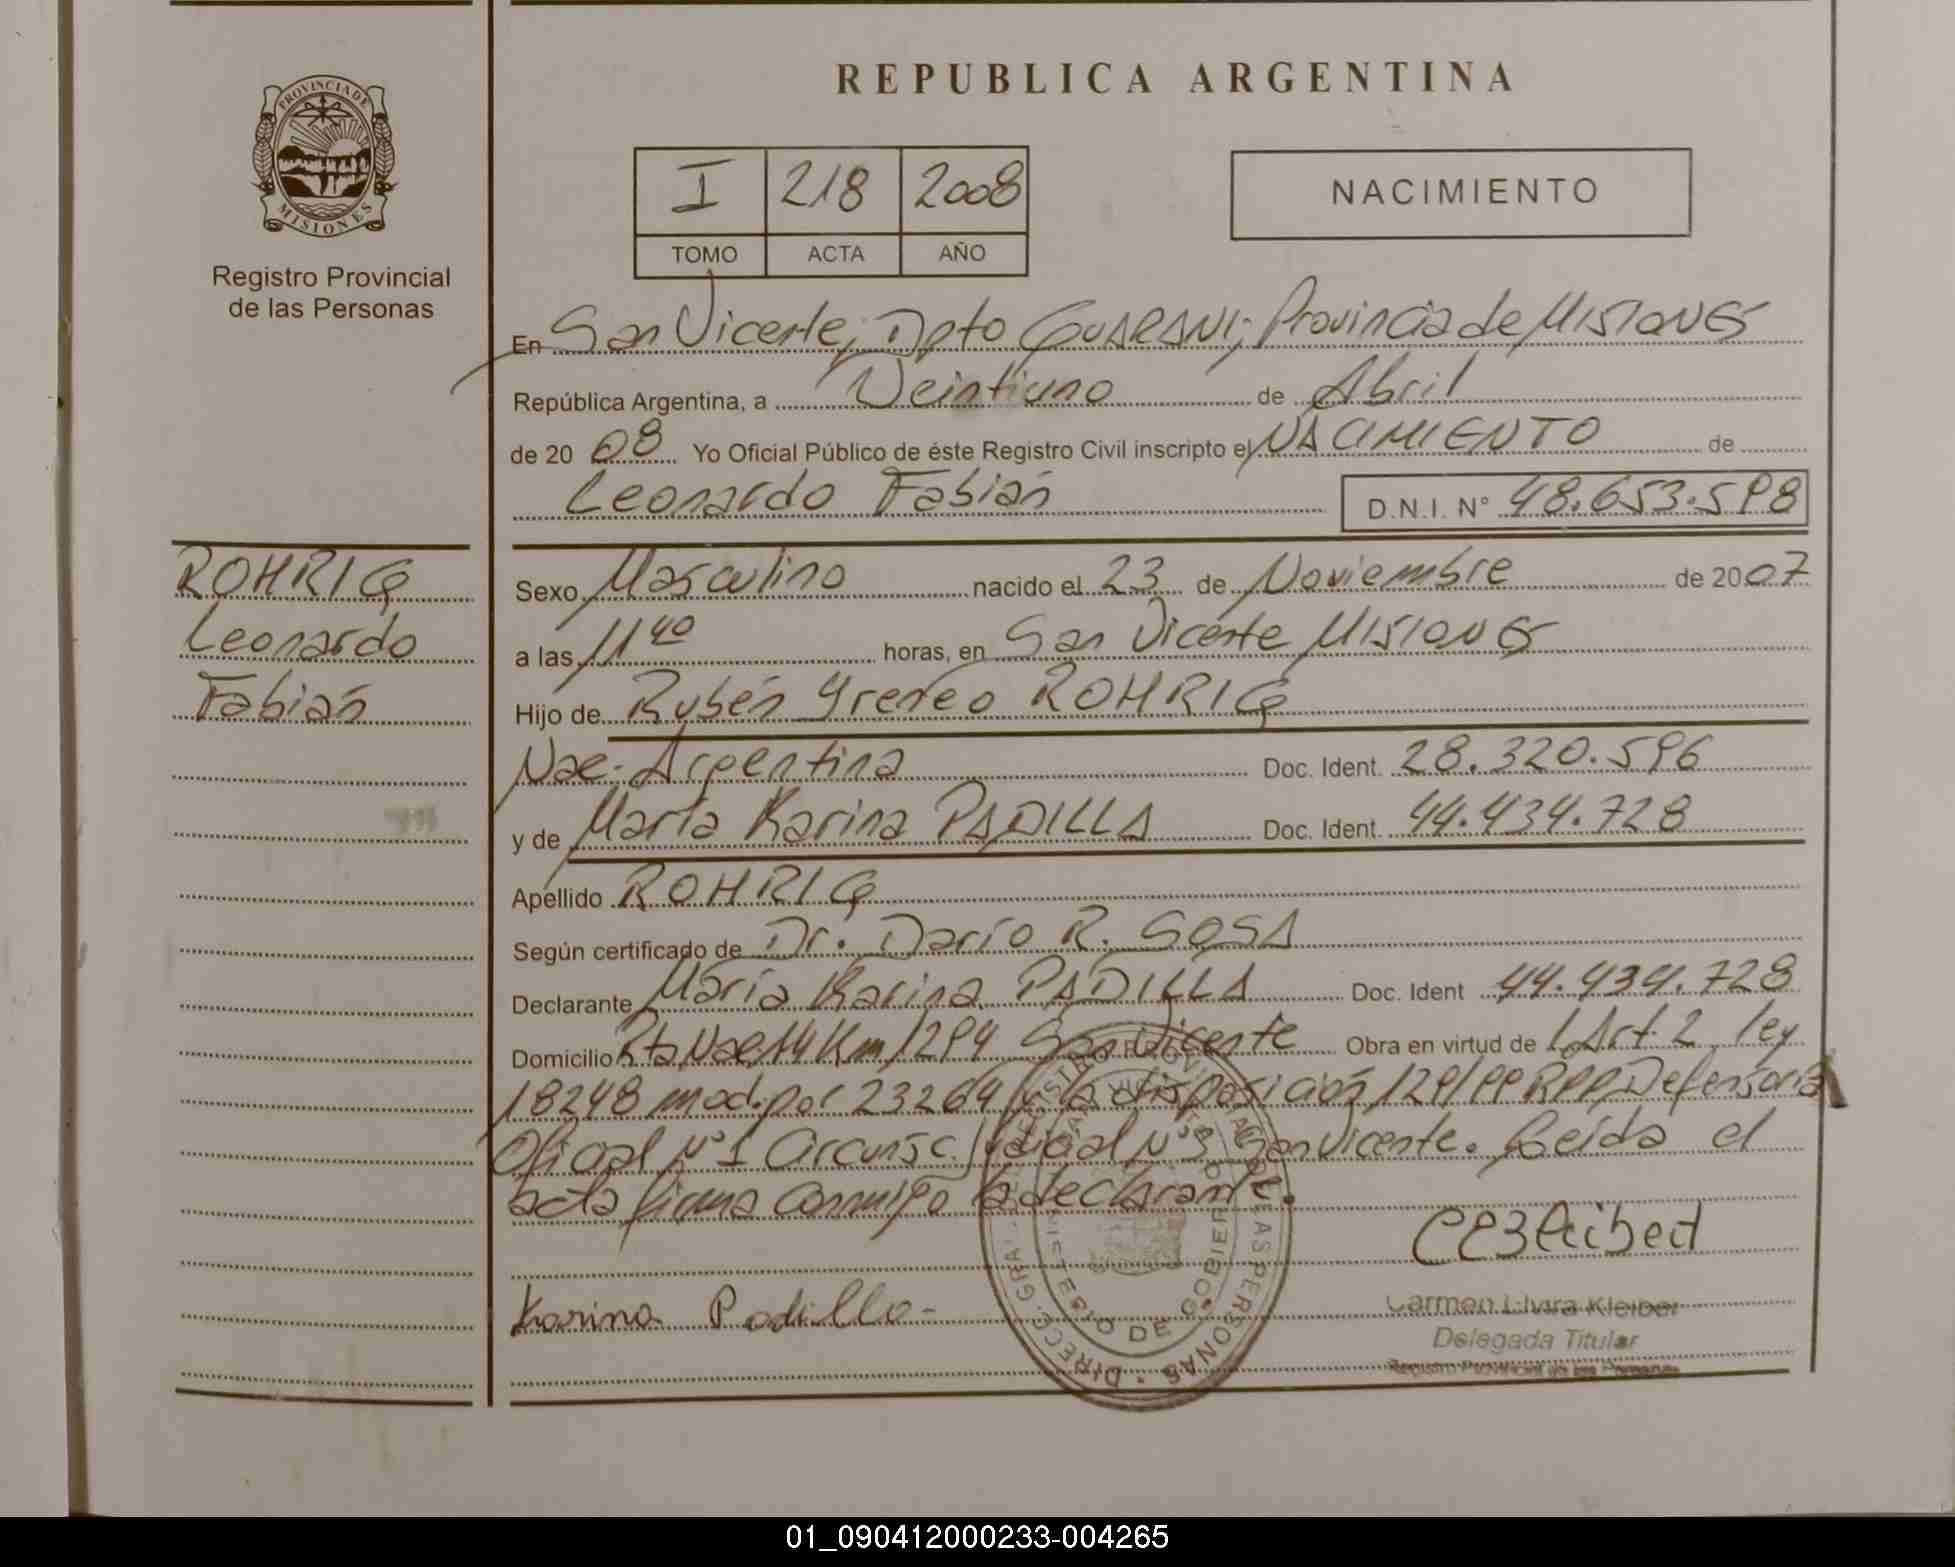 REPUBLICA ARGENTINA
PROVINCIA DE
MISIONES
Registro Provincial
de las Personas
I 218 2008
TOMO ACTA AÑO
NACIMIENTO
En San Vicente, Dpto GUARANI; Provincia de MISIONES
República Argentina, a Veintiuno de Abril
de 20 08 Yo Oficial Público de éste Registro Civil inscripto el NACIMIENTO de
Leonardo Fabián D.N.I. N° 48.653.598
ROHRIG
Leonardo
Fabián
Sexo Masculino nacido el 23 de Noviembre de 2007
a las 11 40 horas, en San Vicente MISIONES
Hijo de Rubén Yreneo ROHRIG
Nac. Argentina Doc. Ident. 28.320.596
y de María Karina PADILLA Doc. Ident. 44.434.728
Apellido ROHRIG
Según certificado de Dr. Darío R. SOSA
Declarante María Karina PADILLA Doc. Ident 44.434.728
Domicilio Rta Nac. 14 Km 1294 San Vicente Obra en virtud de Art. 2 ley
18248 mod. por 23264 y la disposición 129/99 RPP Defensoria
Oficial N°1 Circunsc. Judicial N°3 San Vicente. Leída el
acta firma conmigo la declarante.
Karina Padilla-
Carmen Elvira Kleiber
Delegada Titular
Registro Provincial de las Personas
01_090412000233-004265